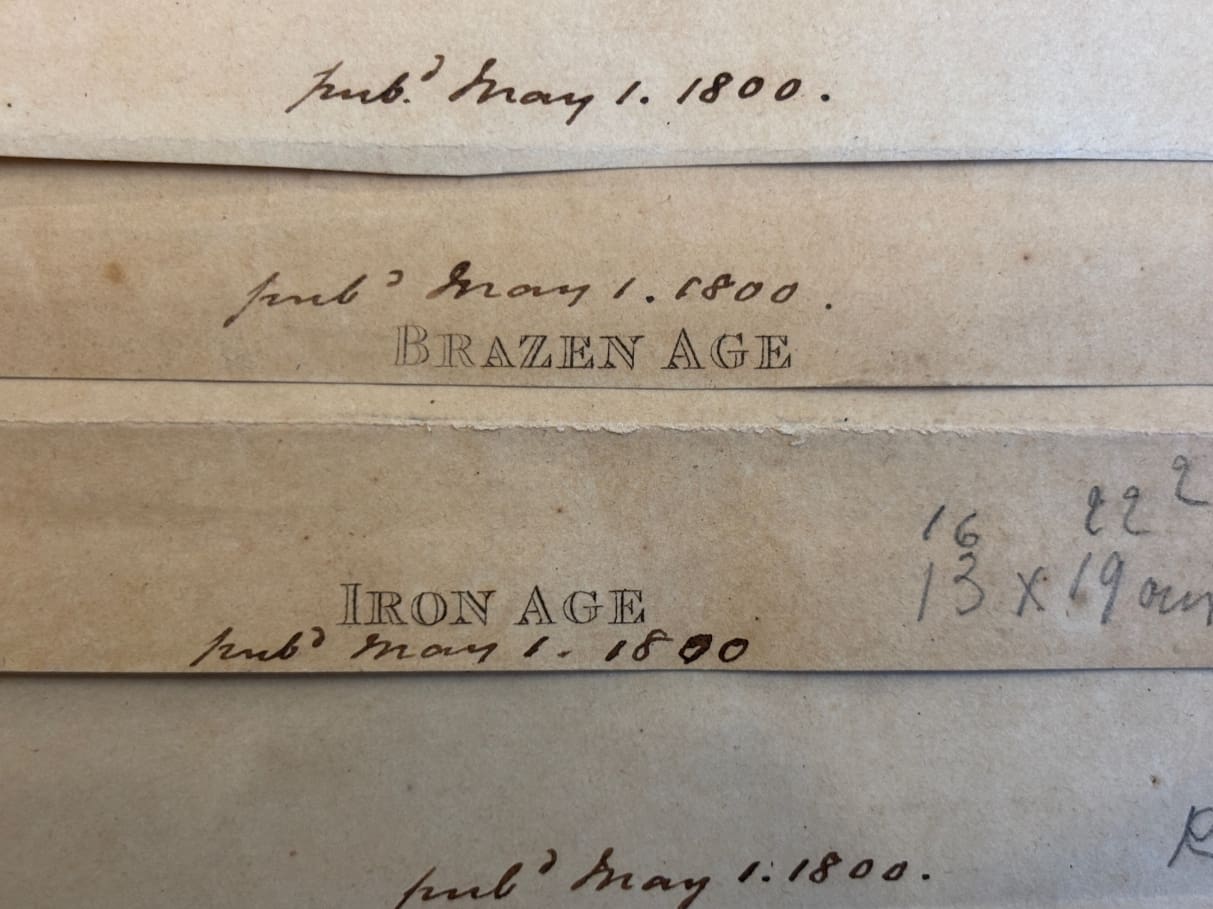 pub.ᵈ May 1. 1800.
pubᵈ May 1. 1800.
BRAZEN AGE
16 22 2
13 x 19 cm
IRON AGE
pubᵈ May 1. 1800
pubᵈ May 1. 1800.